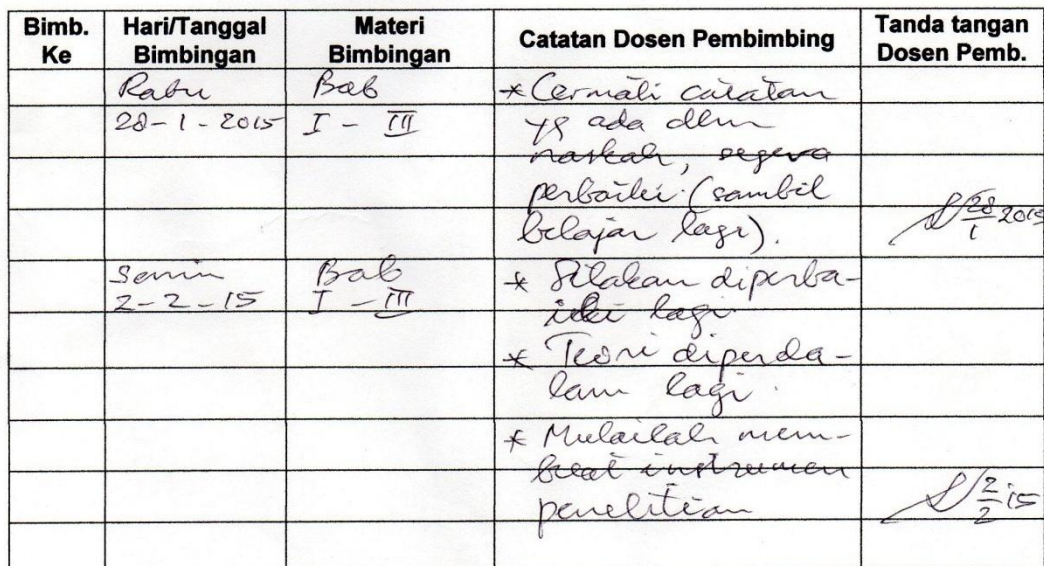 Bimb. Ke | Hari/Tanggal Bimbingan | Materi Bimbingan | Catatan Dosen Pembimbing | Tanda tangan Dosen Pemb.
Rabu | Bab | * Cermati catatan
28-1-2015 | I - III | yg ada dlm
naskah, segera
perbaiki (sambil
belajar lagi). | 28/1 2015
Senin | Bab | * Silakan diperba-
2-2-15 | I - III | iki lagi
* Teori diperda-
lam lagi.
* Mulailah mem-
buat instrumen
penelitian | 2/2 15